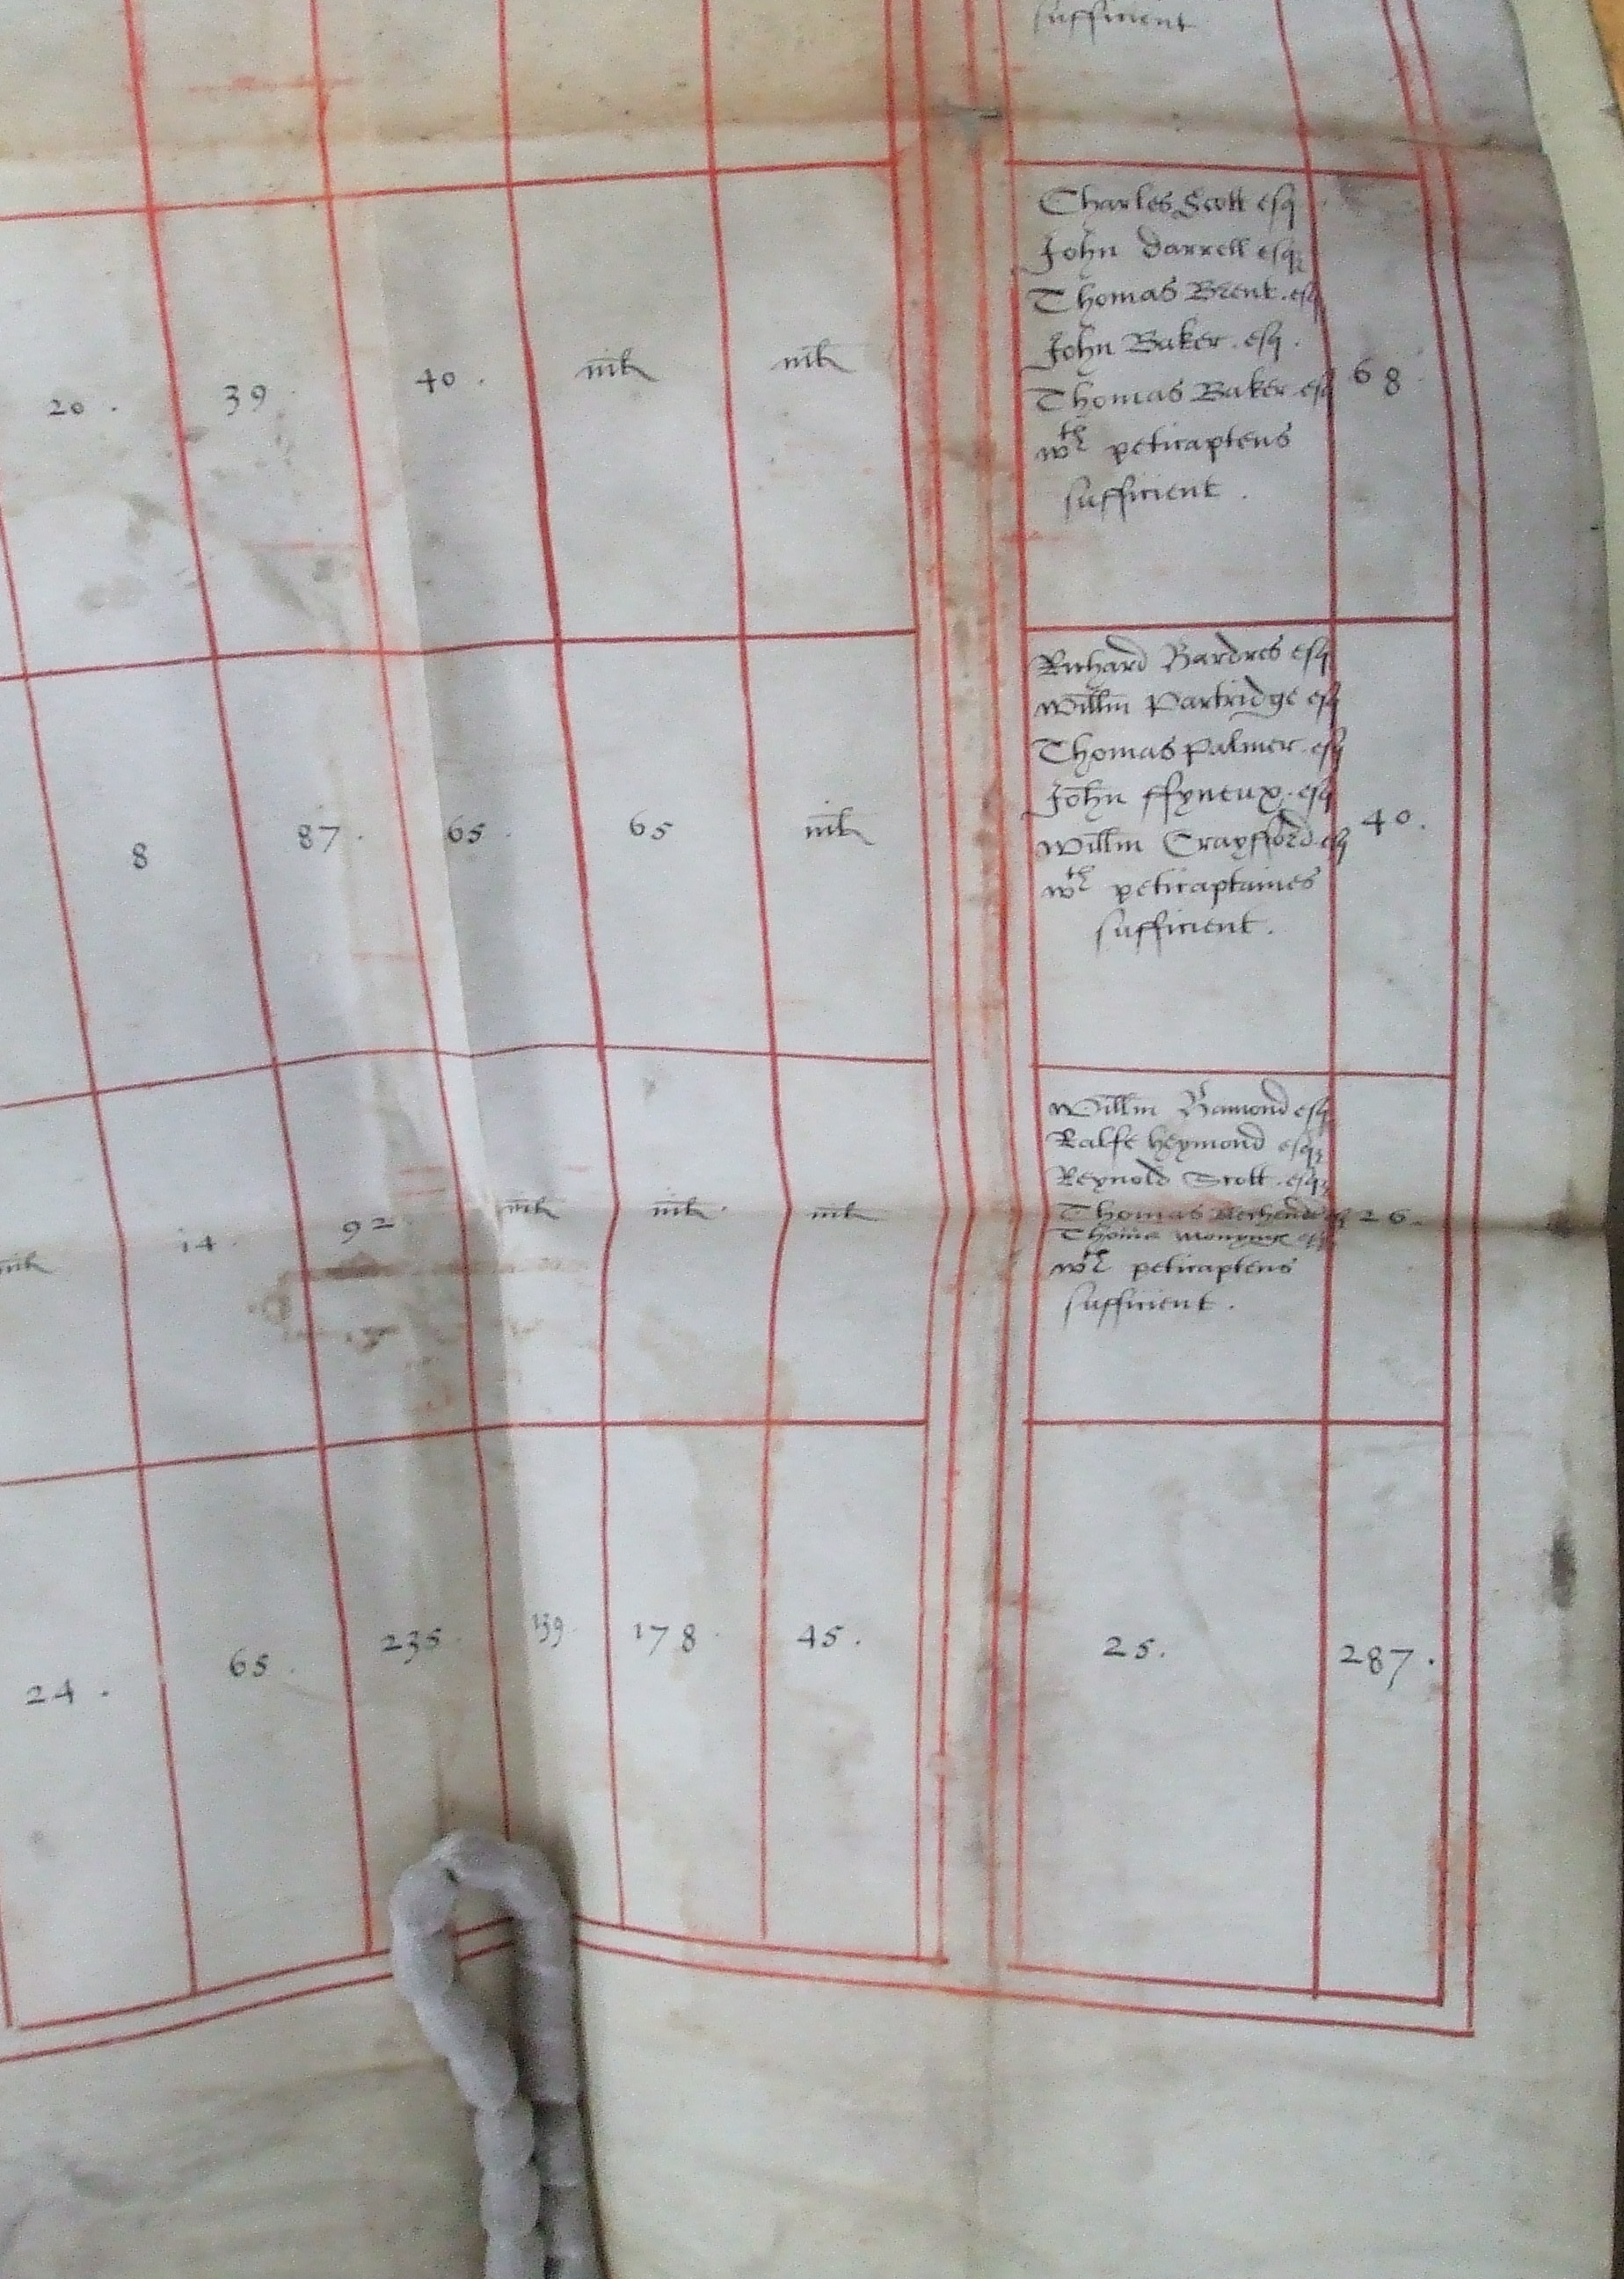 sufficient
20 . 39 . 40 . nil nil
Charles Scott esq
John Darrell esq
Thomas Brent . esq
John Baker . esq .
Thomas Baker esq
wth peticaptens
sufficient .
68
8 87 . 65 . 65 nil
Richard Hardres esq
Willm Partridge esq
Thomas Palmer . esq
John ffyneux . esq
Willm Crayfford . esq
wth peticaptaines
sufficient .
40 .
nil 14 . 92 . nil nil . nil
Willm Hamond esq
Ralfe Heymond esq
Reynold Scott . esq
Thomas esq
Thomas Monynge esq
wth peticaptens
sufficient .
26 .
24 . 65 . 235 . 139 . 178 . 45 . 25 . 287 .